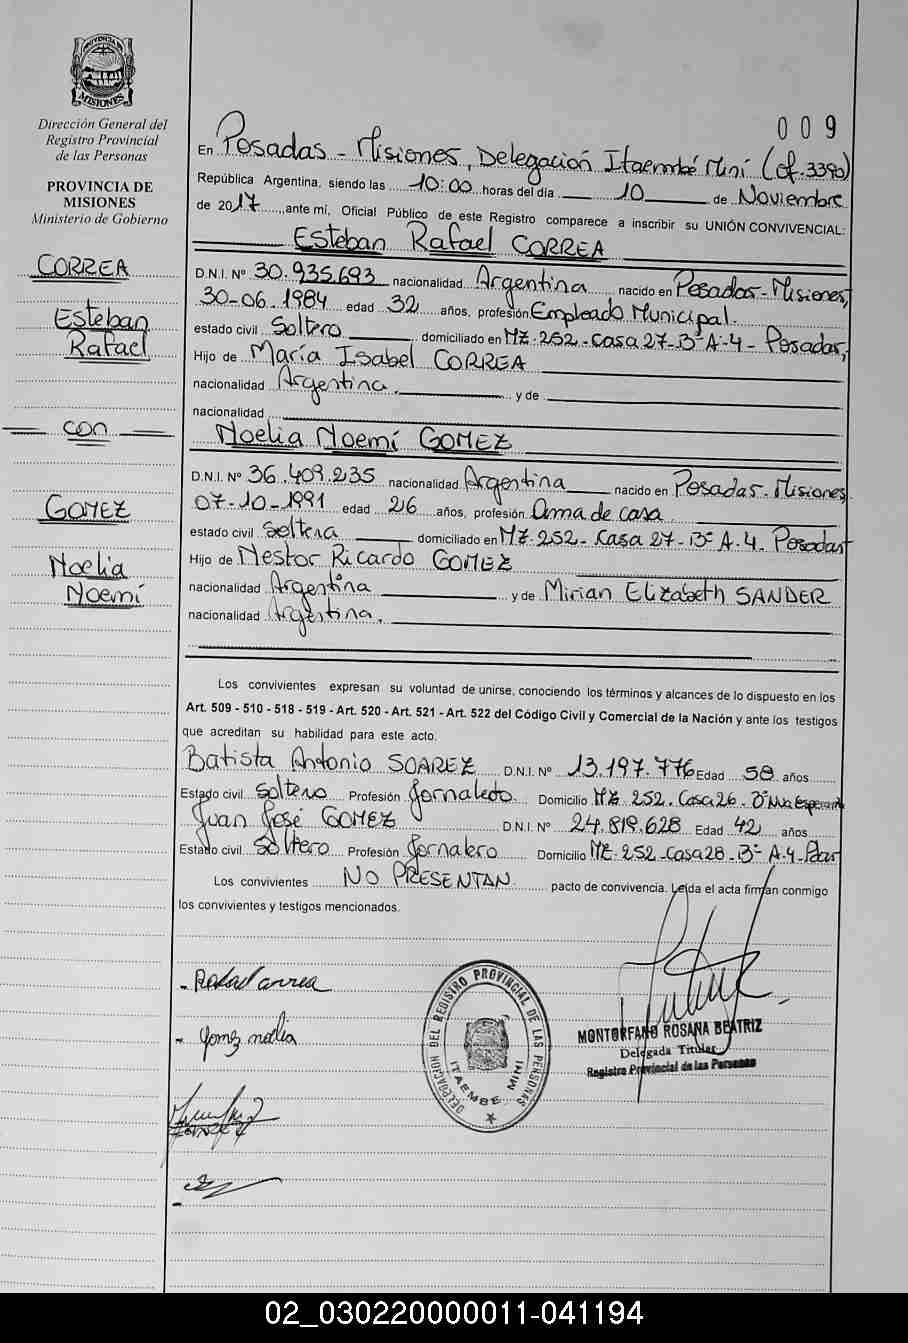 PROVINCIA DE
MISIONES
Dirección General del
Registro Provincial
de las Personas
PROVINCIA DE
MISIONES
Ministerio de Gobierno
CORREA
Esteban
Rafael
con
GOMEZ
Noelia
Noemí
009
En Posadas - Misiones, Delegación Itaembé Miní (of. 3390)
República Argentina, siendo las 10:00 horas del día 10 de Noviembre
de 2017, ante mí, Oficial Público de este Registro comparece a inscribir su UNIÓN CONVIVENCIAL:
Esteban Rafael CORREA
D.N.I. Nº 30.935.693 nacionalidad Argentina nacido en Posadas - Misiones,
30-06-1984 edad 32 años, profesión Empleado Municipal.
estado civil Soltero domiciliado en MZ-252-Casa 27-Bº A-4- Posadas,
Hijo de María Isabel CORREA
nacionalidad Argentina, y de
nacionalidad
Noelia Noemí GOMEZ
D.N.I. Nº 36.409.235 nacionalidad Argentina nacido en Posadas - Misiones
07-10-1991 edad 26 años, profesión Ama de casa
estado civil Soltera domiciliado en MZ-252-Casa 27-Bº A-4- Posadas
Hijo de Nestor Ricardo GOMEZ
nacionalidad Argentina y de Mirian Elizabeth SANDER
nacionalidad Argentina,
Los convivientes expresan su voluntad de unirse, conociendo los términos y alcances de lo dispuesto en los
Art. 509 - 510 - 518 - 519 - Art. 520 - Art. 521 - Art. 522 del Código Civil y Comercial de la Nación y ante los testigos
que acreditan su habilidad para este acto.
Batista Antonio SOAREZ D.N.I. Nº 13.197.776 Edad 58 años
Estado civil Soltero Profesión Jornalero Domicilio MZ 252. Casa 26. Bº Nva Esperanza
Juan José GOMEZ D.N.I. Nº 24.819.628 Edad 42 años
Estado civil Soltero Profesión Jornalero Domicilio MZ-252-Casa 28-Bº A-4-Pdas
Los convivientes NO PRESENTAN pacto de convivencia. Leída el acta firman conmigo
los convivientes y testigos mencionados.
- Rafael Correa
- Gomez noelia
DELEGACION DEL REGISTRO PROVINCIAL DE LAS PERSONAS
ITAEMBE MINI
MONTORFANO ROSANA BEATRIZ
Delegada Titular
Registro Provincial de las Personas
02_030220000011-041194